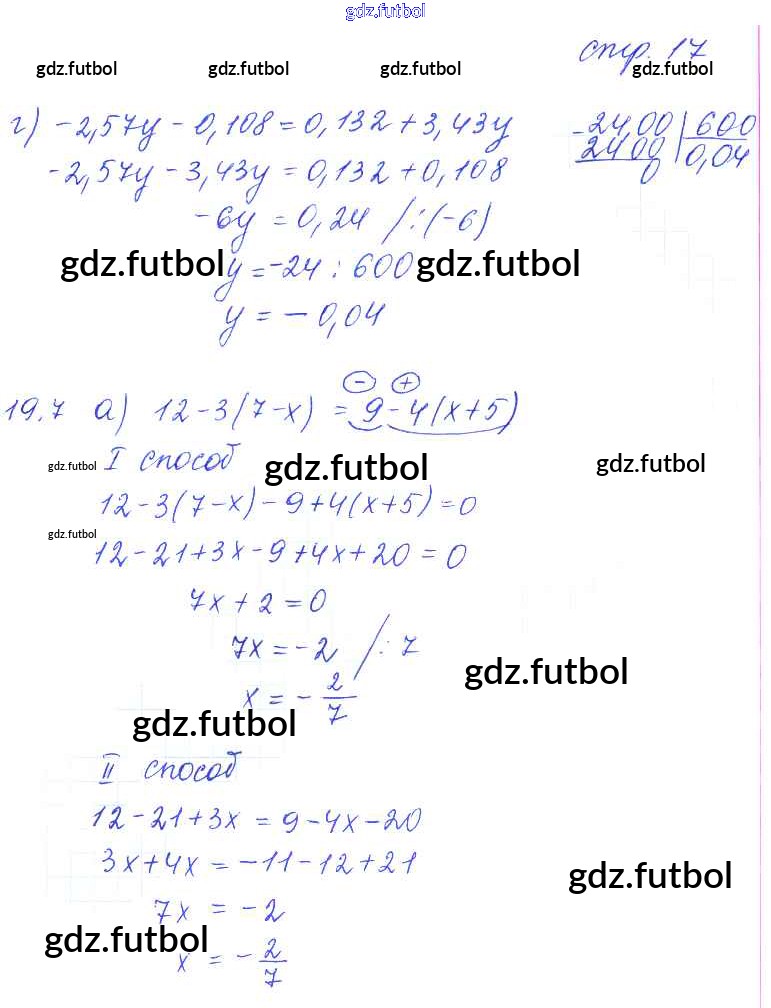 gdz.futbol
стр. 17
gdz.futbol gdz.futbol gdz.futbol gdz.futbol
г) -2,57y - 0,108 = 0,132 + 3,43y
-2,57y - 3,43y = 0,132 + 0,108
-6y = 0,24 /:(-6)
y = -24 : 600
y = - 0,04
-24,00 | 600
24 00 | 0,04
0
gdz.futbol gdz.futbol
19.7 а) 12-3(7-x) = 9-4(x+5)
- +
I способ
gdz.futbol gdz.futbol gdz.futbol
12-3(7-x)-9+4(x+5)=0
gdz.futbol
12-21+3x-9+4x+20=0
7x+2=0
7x=-2 /:7
x = - 2/7
gdz.futbol
gdz.futbol
II способ
12-21+3x = 9-4x-20
3x+4x = -11-12+21
gdz.futbol
7x = -2
gdz.futbol
x = - 2/7